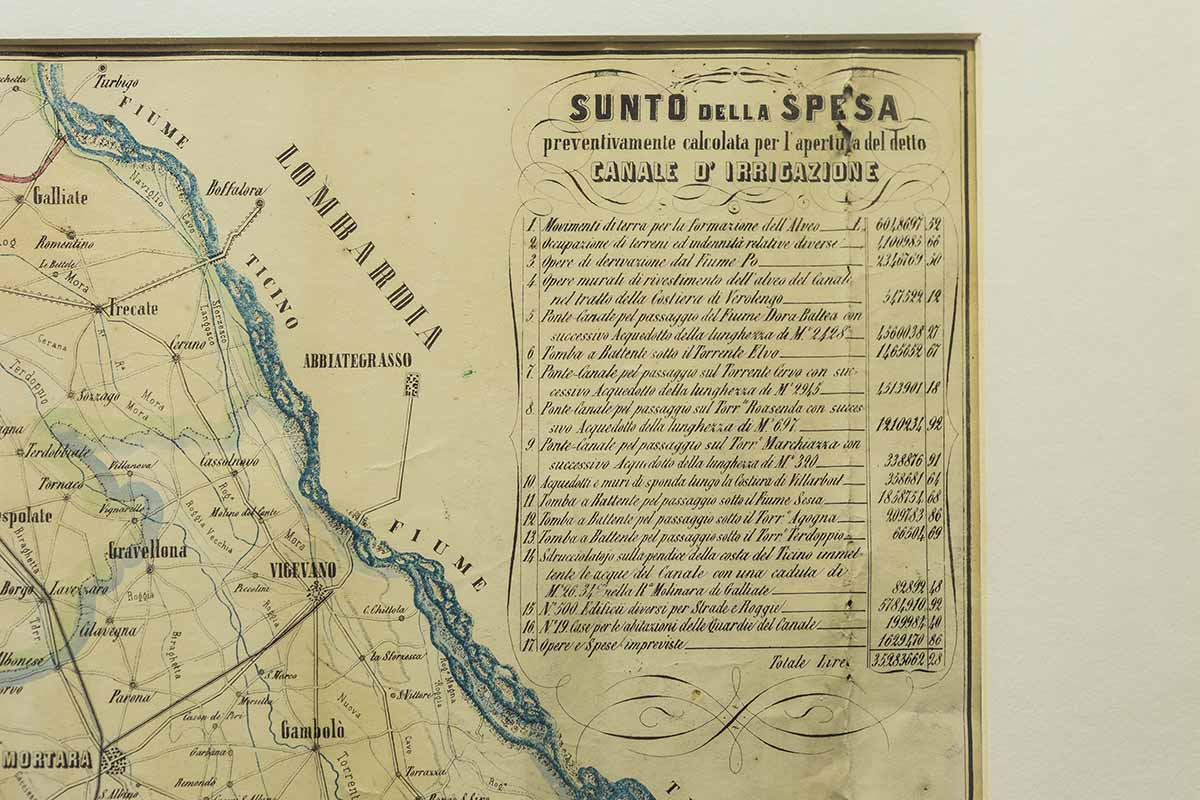 Turbigo
FIUME
Galliate
Naviglio
Boffalora
LOMBARDIA
Romentino
Mora
Trecate
TICINO
Sforzesco
Langosco
Cerana
Cerano
ABBIATEGRASSO
Terdoppio
Sozzago
Mora
Mora
Terdobbiate
Villanova
Cassolnovo
Tornaco
Vignarello
Molino del Conte
Roggia Vecchia
Mora
FIUME
Gravellona
VIGEVANO
Biraghetta
Borgo Lavezzaro
Roggia
Piccolini
Roggia
C. Chittola
Cilavegna
Biraghetta
La Sforzesca
Albonese
S. Marco
Parona
Mirulla
S. Vittore
Roggia
Magna
Nuova
Cason de Peri
Gambolò
Garbana
MORTARA
Remondò
Torrazza
Torrent
Cavo
S. Albino
SUNTO DELLA SPESA
preventivamente calcolata per l'apertura del detto
CANALE D' IRRIGAZIONE
1. Movimenti di terra per la formazione dell'Alveo L. 6048697 52
2. Occupazione di terreni ed indennità relative diverse 4100985 66
3. Opere di derivazione dal Fiume Po 2346769 50
4. Opere murali di rivestimento dell'alveo del Canale
nel tratto della Costiera di Verolengo 547522 12
5. Ponte-Canale pel passaggio del Fiume Dora Baltea con
successivo Acquedotto della lunghezza di M.ⁱ 2428 4560038 27
6. Tomba a Battente sotto il Torrente Elvo 1465652 67
7. Ponte-Canale pel passaggio sul Torrente Cervo con suc-
cessivo Acquedotto della lunghezza di M.ⁱ 2945 4513901 18
8. Ponte-Canale pel passaggio sul Torr.ᵉ Roasenda con succes-
sivo Acquedotto della lunghezza di M.ⁱ 697 1210234 92
9. Ponte-Canale pel passaggio sul Torr.ᵉ Marchiazza con
successivo Acquedotto della lunghezza di M.ⁱ 320 338876 91
10. Acquedotti e muri di sponda lungo la Costiera di Villarboit 358681 64
11. Tomba a Battente pel passaggio sotto il Fiume Sesia 1858754 68
12. Tomba a Battente pel passaggio sotto il Torr.ᵉ Agogna 209783 86
13. Tomba a Battente pel passaggio sotto il Torr.ᵉ Terdoppio 66504 69
14. Sdrucciolatojo sulla pendice della costa del Ticino immet-
tente le acque del Canale con una caduta di
M.ⁱ 26.34 nella R.ᵃ Molinara di Galliate 82892 48
15. N.° 500 Edificii diversi per Strade e Roggie 5784910 92
16. N.° 19 Case per le abitazioni delle Guardie del Canale 199984 40
17. Opere e Spese impreviste 1629470 86
Totale Lire 35283662 28